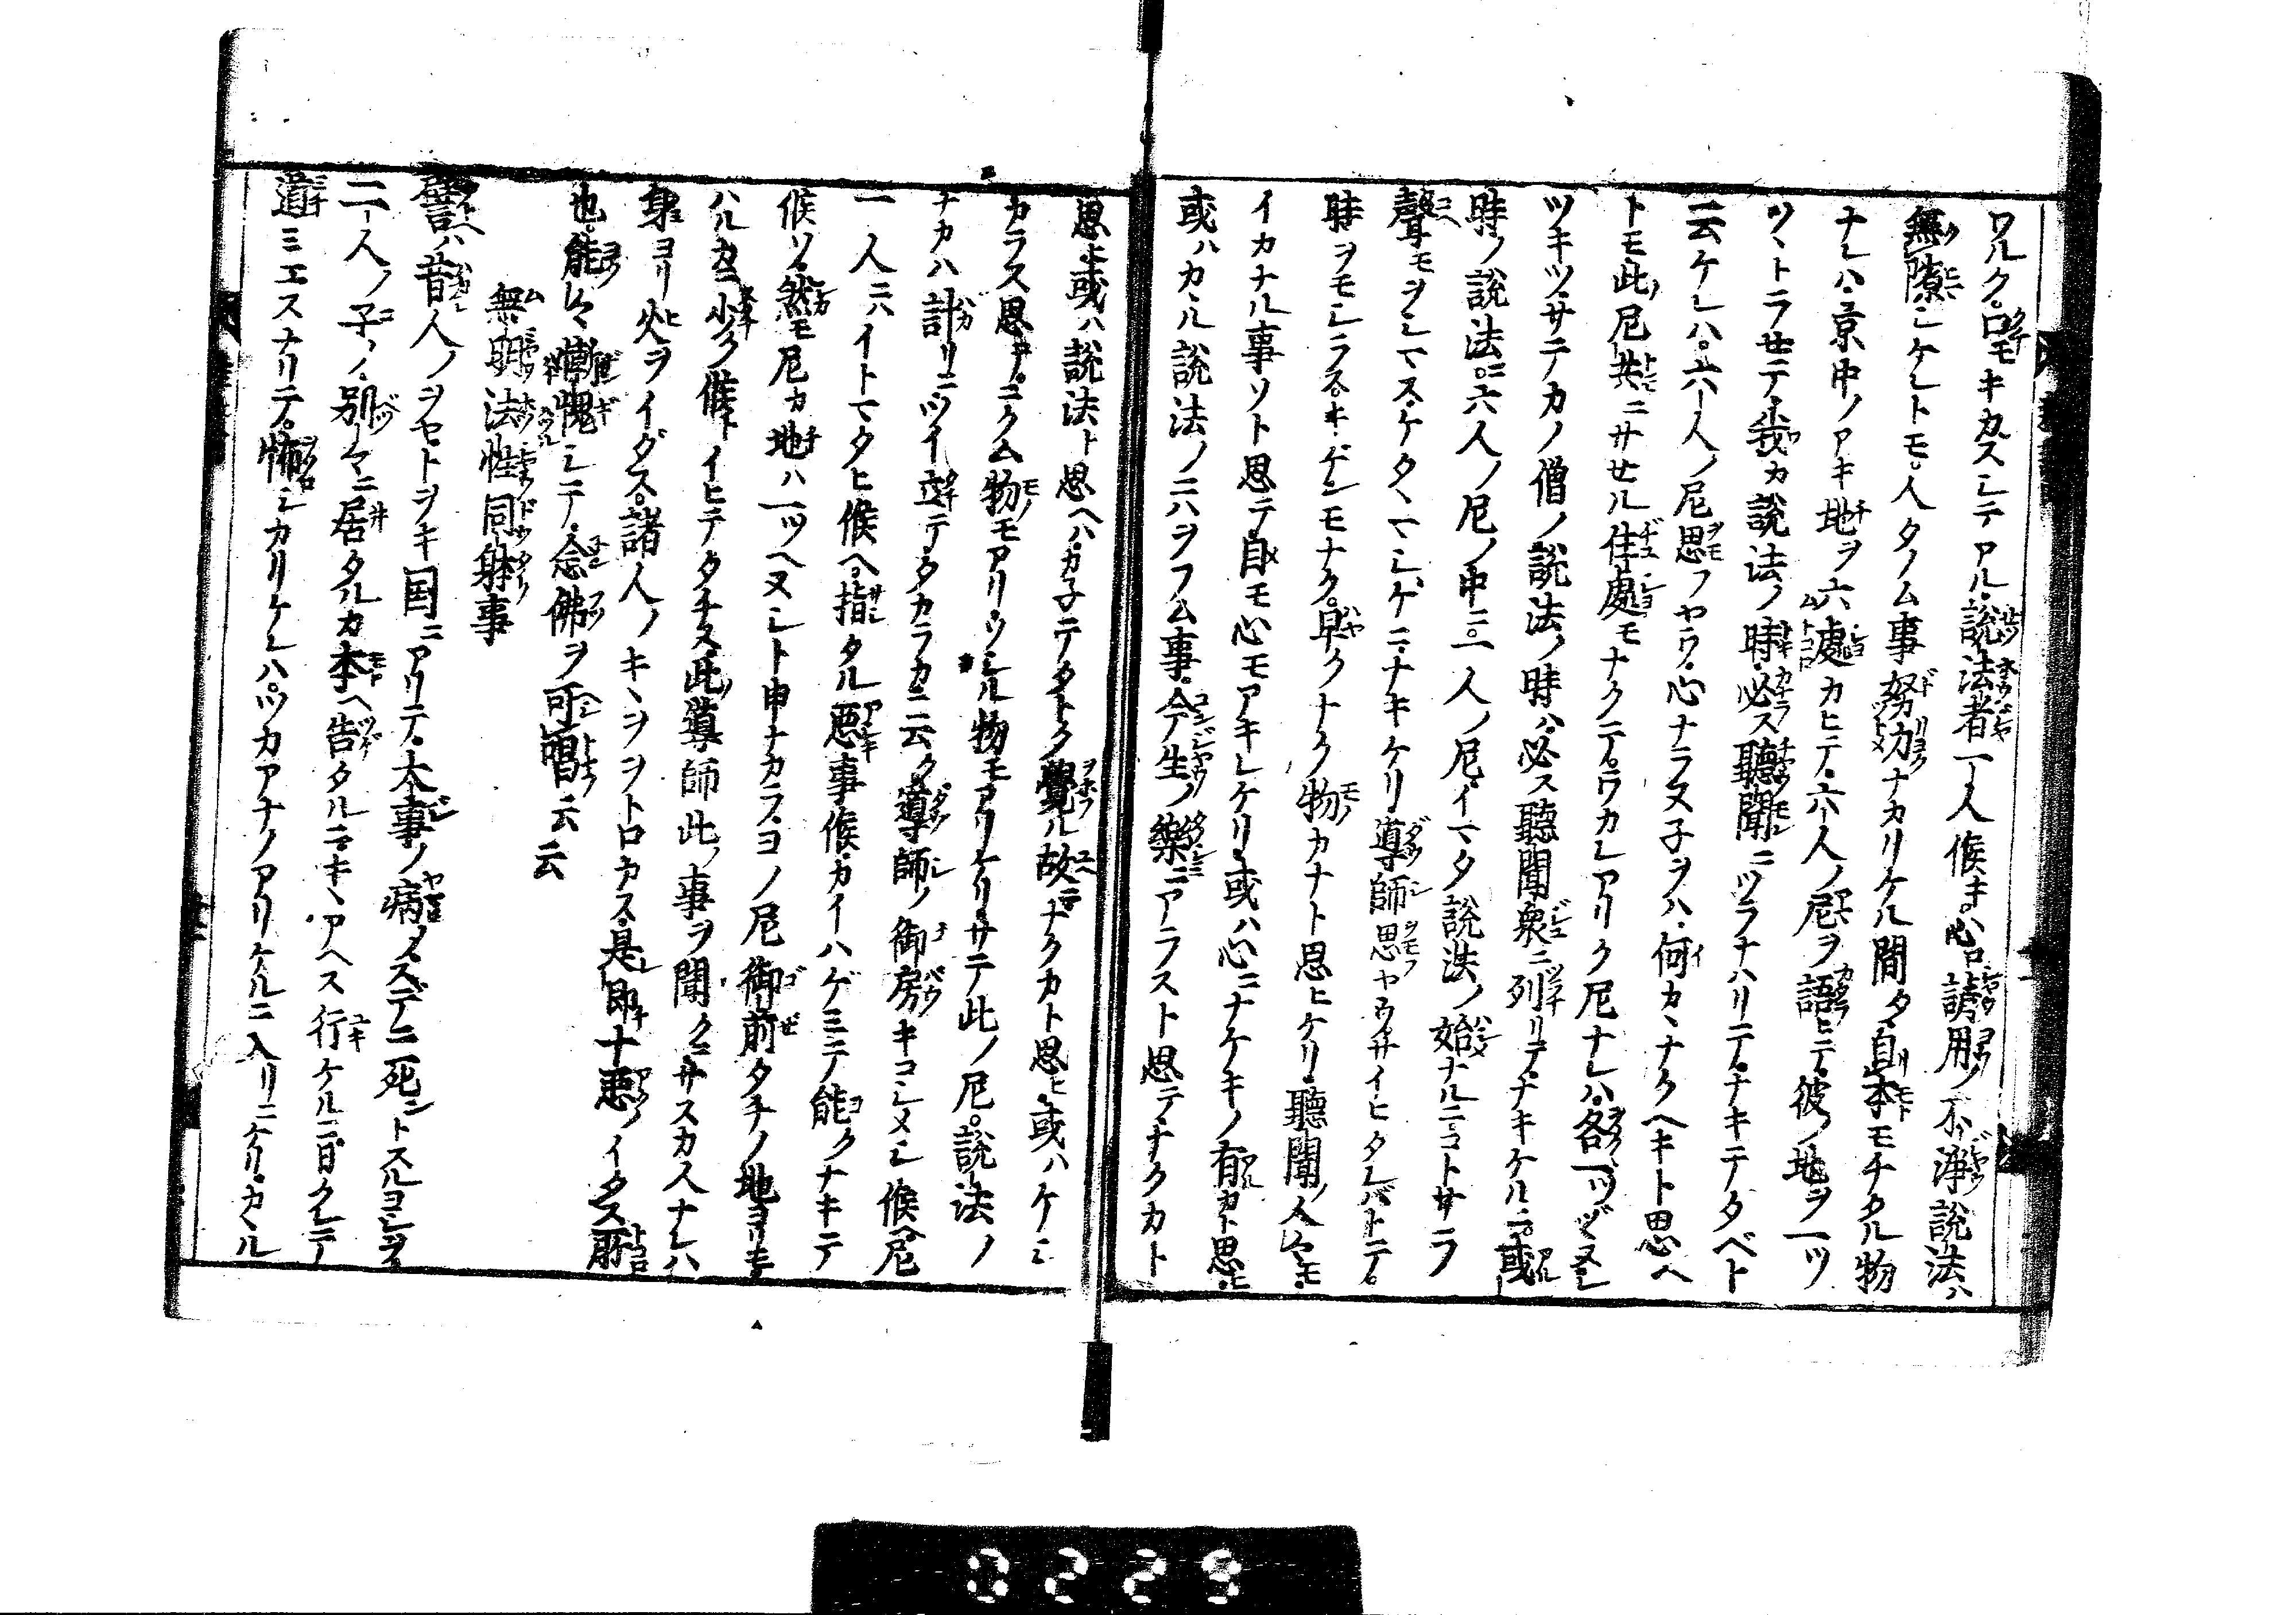 ワルク。口モキカスシテアル。説法者一人候キ。心ロ諸用ノ不浄説法ハ
無隙シケレトモ。人タノム事努力ナカリケル間タ自本モチタル物
ナレハ。京中ノアキ地ヲ六處カヒテ。六人ノ尼ヲ語ヒテ。彼ノ地ヲ一ツ
ツヽトラセテ。我カ説法ノ時。必ス聴聞ニツラナハリテ。ナキテタベト
云ケレハ。六人ノ尼思フヤウ。心ナラヌ子ヲハ。何カヽナクヘキト思ヘ
トモ此尼共ニサセル住處モナクテ。ワカレアリク尼ナレハ。各一ツヅヽヌシ
ツキツ。サテカノ僧ノ説法ノ時ハ。必ス聴聞衆ニ列リテ。ナキケルニ。或
時ノ説法ニ。六人ノ尼ノ中ニ。一人ノ尼イマタ説法ノ始ナルニ。コトサラ
聲モヲシマス。ケタヽマシゲニ。ナキケリ。導師思ヤウ。サイヒタレバトテ。
時ヲモシラス。キゲンモナク。早クナク物カナト思ヒケリ。聴聞ノ人々モ。
イカナル事ソト思テ。自モ心モアキレケリ。或ハ心ニナケキノ有カト思モ。
或ハカヽル説法ノ二八ヲフム事。今生ノ樂ニアラスト思テ。ナクカト
思ヒ。或ハ説法ト思ヘハ。カ子テタトク覺ル故ニ。ナクカト思ヒ。或ハケシ
カラス思テ。ニクム物モアリ。ウシル物モアリケリ。サテ此ノ尼。説法ノ
ナカハ計リニツイ立テ。タカラカニ云ク。導師ノ御房キコシメシ候ヘ。尼
一人ニハイトマタヒ候ヘ。指タル悪事候。カイハゲミテ能クナキテ
候ソ。然モ尼カ地ハ一ツヘヌシト申ナカラ。ヨノ尼御前タチノ地ヨリモ
ハルカニ少ク候トイヒテ。タチヌ。此導師此ノ事ヲ聞クニ。サスカ人ナレハ
身ヨリ火ヲイダス。諸人ノキヽヲヲトロカス。是即十悪ノイタス所
也。能々慚愧シテ。念佛ヲ可唱云云
無明法性同躰事
譬ハ昔人ノヲヤトヲキ国ニアリテ。大事ノ病ヲシテ。ステニ死ントスルヨシヲ
二人ノ子ノ。別々ニ居タルカ本ヘ告タルニ。キヽアヘス行ケルニ日クレテ
道ミエスナリテ。怖シカリケレハ。ツカアナノアリケルニ入リニケリ。カヽル